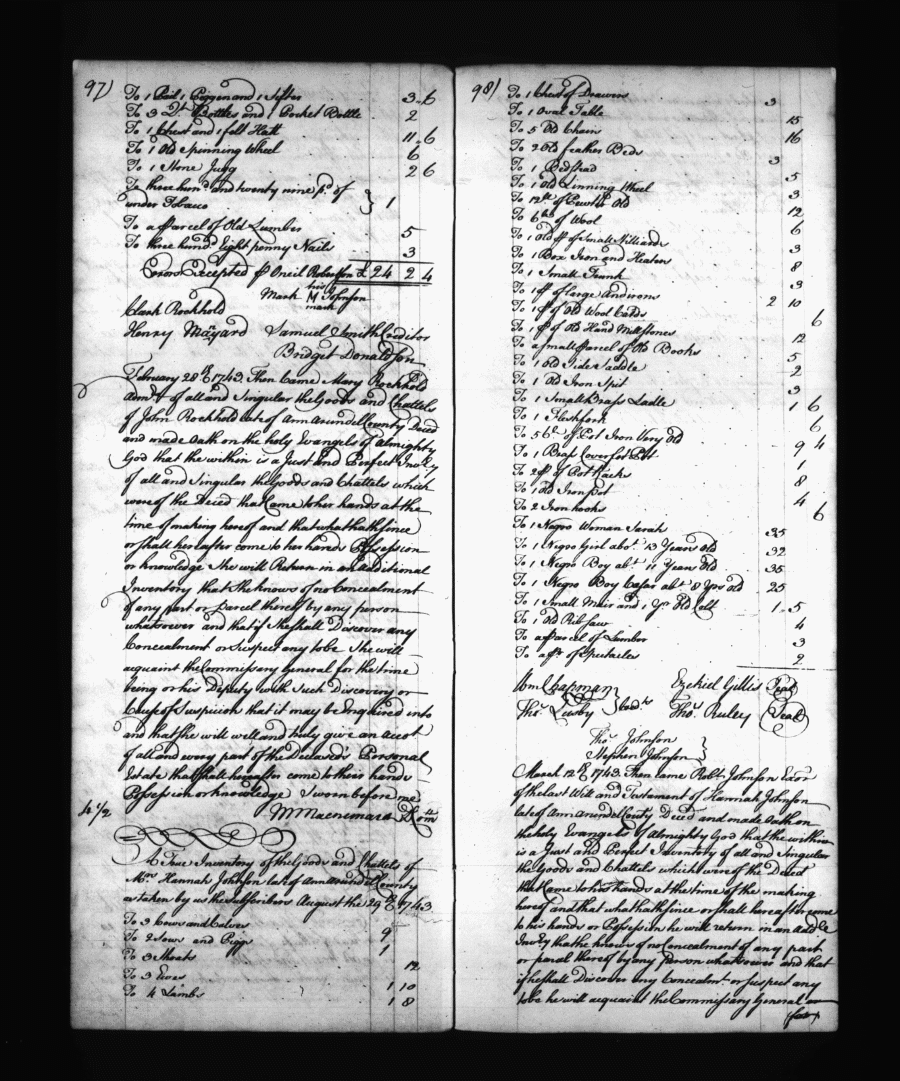 97)
To 1 Pail 1 Piggin and 1 Sifter 3 .. 6
To 3 Qt. Bottles and 1 Pocket Bottle 2
To 1 Chest and 1 felt Hatt 11 .. 6
To 1 Old Spinning Wheel 6
To 1 Stone Jugg 2 6
To three hund. and twenty nine pd. of
under Tobacco } 1
To a pparcel of Old Lumber 5
To three hund. Eight penny Nails 3
Errors Excepted p Oneil Robertson £ 24 2 4
his
Mark M Johnson
mark
Clark Rockhold
Henry Mayard Samuel Smith Creditor
Bridget Donaldson
February 28th 1743 Then Came Mary Rockhold
Adm.x of all and Singular the Goods and Chattels
of John Rockhold late of Ann Arundell County Deced
and made Oath on the holy Evangels of Almighty
God that the within is a Just and Perfect Invry
of all and Singular the Goods and Chattels which
were of the Deced that Came to her hands at the
time of making hereof and that what hath since
or shall hereafter come to her hands Possession
or knowledge She will Return in an additional
Inventory that She knows of no Concealment
of any part or parcel thereof by any person
whatsoever and that if She shall Discover any
Concealment or Suspect any to be She will
acquaint the Commissary General for the time
being or his Deputy with Such Discovery or
Cause of Suspicion that it may be Enquired into
and that She will well and truly give an Accot
of all and every part of the Deceased's Personal
Estate that shall hereafter come to their hands
Possession or knowledge Sworn before me
W Macnemara D Com
A True Inventory of the Goods and Chattels of
Mrs Hannah Johnson late of Ann Arundel County
as taken by us the Subscribers August the 29th 1743
To 3 Cows and Calves 9
To 2 Sows and Piggs 1
To 3 Shoats 12
To 3 Ewes 1 10
To 4 Lambs 1 8
98)
To 1 Chest of Drawers 3
To 1 Oval Table 15
To 5 Old Chairs 16
To 2 Old feather Beds 3
To 1 Bedstead 5
To 1 Old Linning Wheel 3
To 12 lb of Pewter Old 12
To 6 lb of Wool 6
To 1 Old pr of Small Stilliards 3
To 1 Box Iron and Heaters 8
To 1 Small Trunk 3
To 1 pr of large Andirons 2 10
To 1 pr of Old Wool Cards 6
To 1 pr of Old Hand Millstones 12
To a small parcel of Old Books 5
To 1 Old Side Saddle 2
To 1 Old Iron Spit 3
To 1 Small Brass Ladle 1 6
To 1 Fleshfork 6
To 56 lb of Pot Iron Very Old 9 4
To 1 Brass Cover for Pot 1
To 2 pr of Pot racks 8
To 1 Old Iron Pot 4
To 2 Iron hooks 6
To 1 Negro Woman Sarah 35
To 1 Negro Girl abot. 13 Years Old 32
To 1 Negro Boy abt. 11 Years Old 35
To 1 Negro Boy Cesar abt 8 Yrs old 25
To 1 Small Mair and 1 Yr Old Colt 1 .. 5
To 1 Old Rib saw 4
To a pparcel of Lumber 3
To a pr. of Spectacles 2
Wm Chapman Ezekiel Gillis Seal
Thos. Lusby } Cred.rs Thos. Ruley (Seal)
Thos. Johnson
Stephen Johnson }
March 12th 1743 Then Came Robt. Johnson Exor
of the last Will and Testament of Hannah Johnson
late of Ann Arundel County Deced and made Oath on
the holy Evangels of Almighty God that the within
is a Just and Perfect Inventory of all and Singular
the Goods and Chattels which were of the Deced
that Came to his hands at the time of the making
hereof and that what hath since or shall hereafter come
to his hands or Possession he will return in an Addl
Invry that he knows of no Concealment of any part
or parcel thereof by any person whatsoever and that
if he shall Discover any Concealmt. or suspect any
to be he will acquaint the Commissary General or
(for)